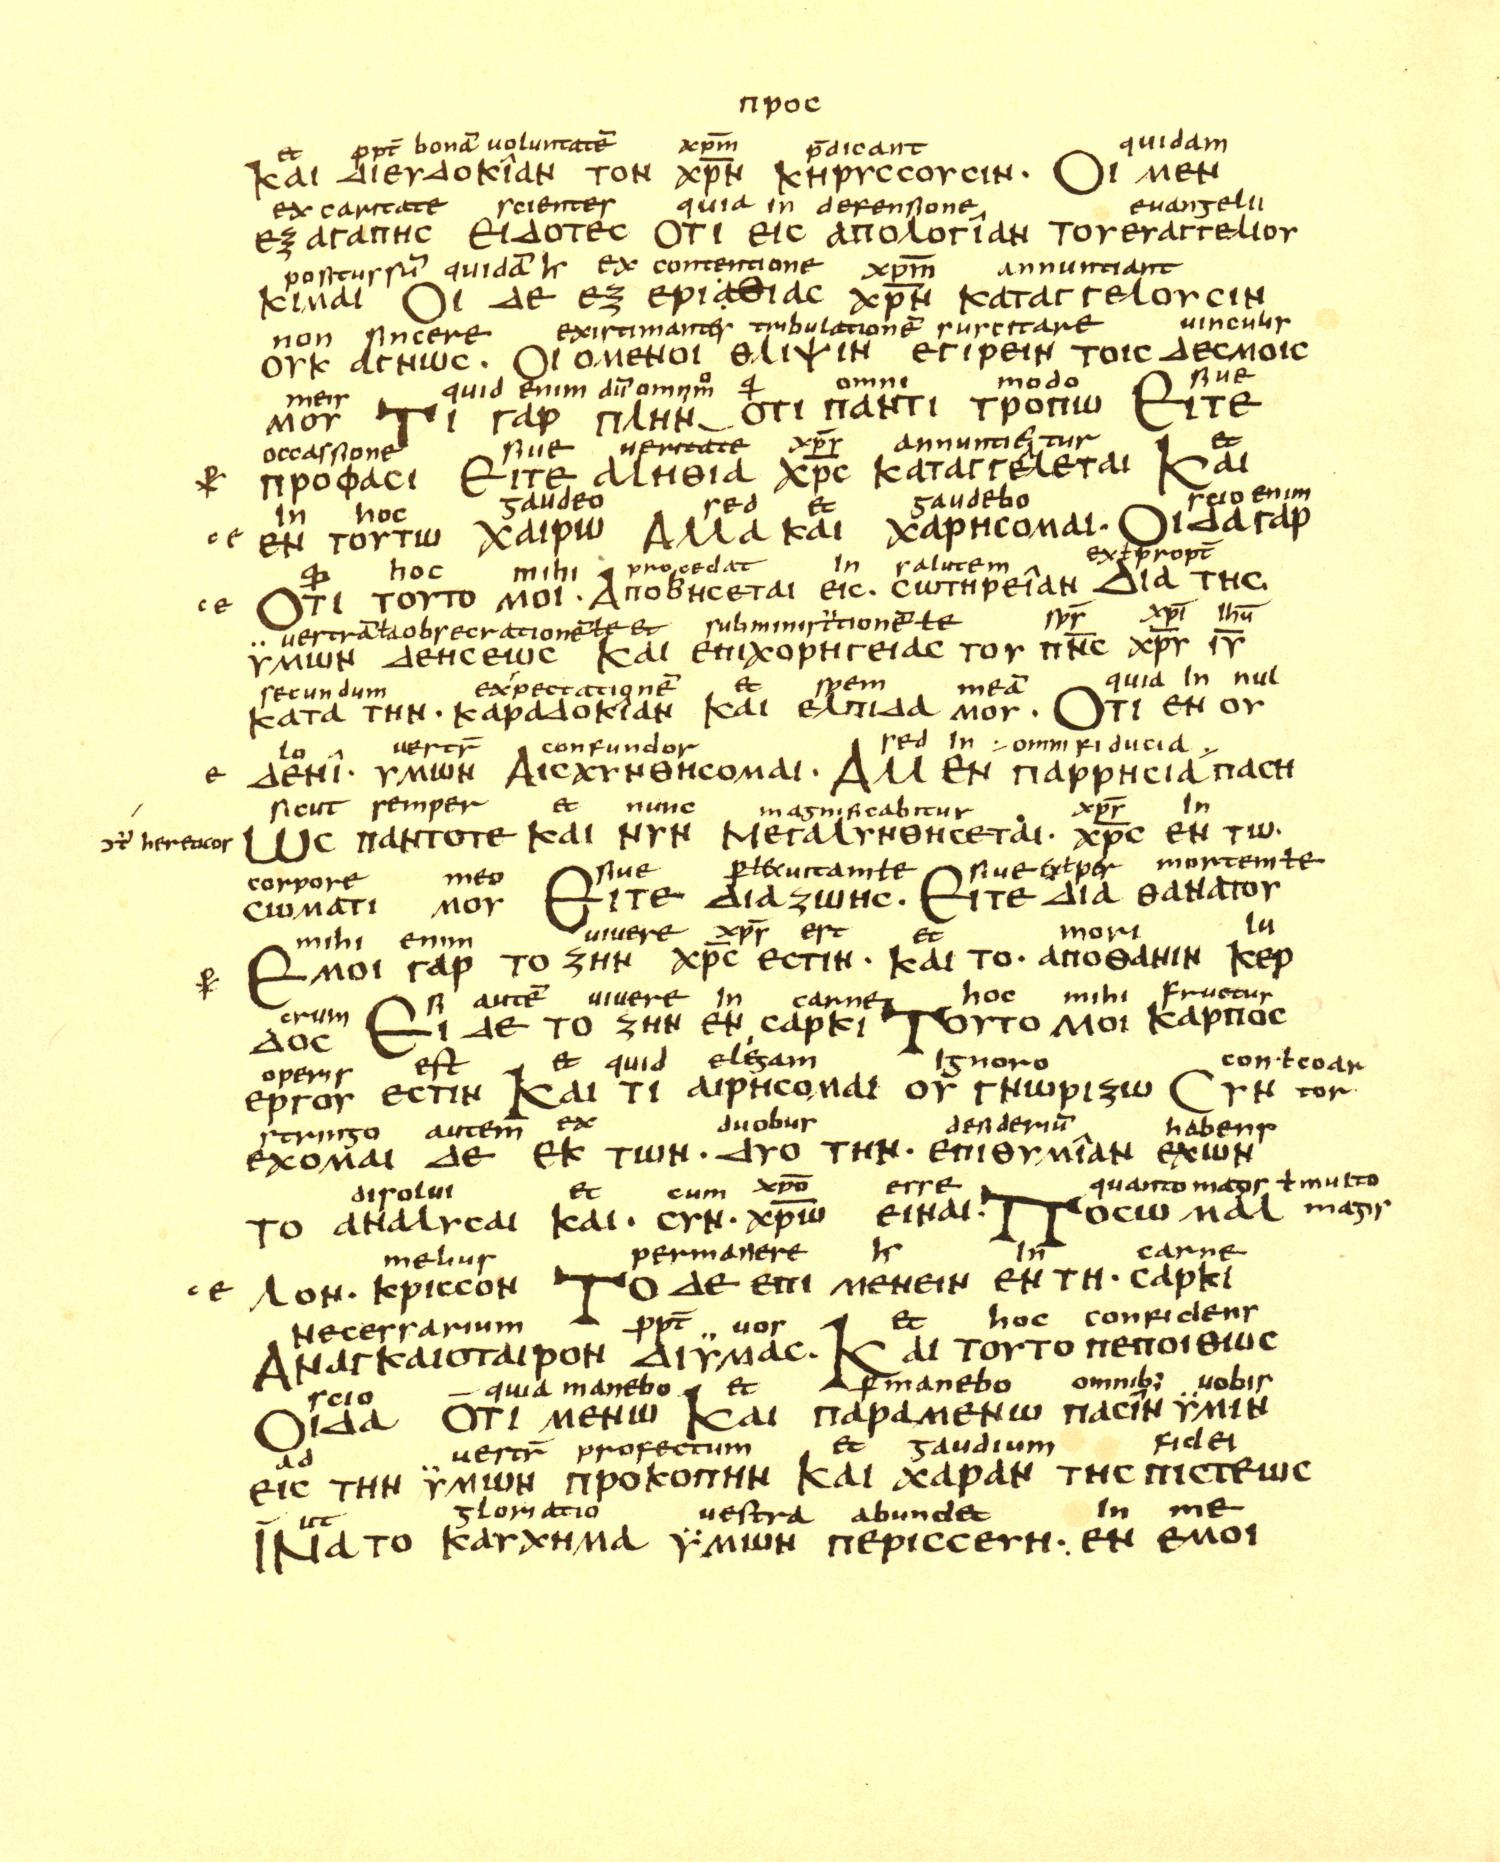 προς
et ꝓpt̄ bonā uoluntatē xpm̄ p̄dicant quidam
και διευδοκîαν τον χρ̅ν κηρυccουcιν. Οι μεν
ex caritate scienter quia in defensione euangelii
εξ αγαπηc ειδοτεc οτι ειc απολογîαν τουευαγγελιου
positus sū quidā ex contentione xpm̄ annuntiant
κιμαι Οι δε εξ εριαθιαc χρ̅ν καταγγελουcιν
non sincere existimantes tribulationē suscitare uinculis
ουκ αγνωc. Οιομενοι θλιψιν εγιρειν τοιc δεcμοιc
meis quid enim omni modo Siue
μου Τι γαρ πλην οτι παντι τροπω Ειτε
occassione siue ueritate xp̄s annuntietur et
προφαcι Ειτε αληθια χρ̅c καταγγελεται Και
In hoc gaudeo sed et gaudebo scio enim
cε εν τουτω χαιρω Αλλα και χαρηcομαι. Οιδα γαρ
hoc mihi procedat In salutem propt̄
cε Οτι τουτο μοι. Αποβηcεται ειc. cωτηρεîαν Δια τηc
et sp̄s xp̄i ihū
ϋμων δεηcεωc και επιχορηγειαc του πν̅c χρ̅υ ιυ̅
secundum expectationē et spem meā quia In nul
κατα την. καραδοκîαν και ελπιδα μου. Οτι εν ου
lo confundor sed In omni fiducia
ε δενî. υμων Αιcχυνθηcομαι. Αλλ εν παρρηcια παcη
sicut semper et nunc magnificabitur xp̄s In
hereticos Ωc παντοτε και νυν Μεγαλυνθηcεται. χρ̅c εν τω.
corpore meo siue siue mortem ɫe
cωματι μου Ειτε δια ζωηc. Ειτε δια θανατου
mihi enim uiuere xp̄s est et mori lu
Εμοι γαρ το ζην χρ̅c εcτιν. και το. αποθανιν κερ
crum Si autē uiuere In carne hoc mihi fructus
δοc Ει δε το ζην εν cαρκι Τουτο μοι καρποc
operis est et quid elegam Ignoro con ɫ coar
εργου εcτιν Και τι αιρηcομαι ου γνωριζω Cυν του
stringo autem ex duobus desideriū habens
εχομαι δε εκ των. δυο την. επιθυμîαν εχων
disolui et cum xpō esse quanto magis ɫ multo
το αναλυcαι και. cυν. χρ̅ω ειναι. Ποcω μαλ magis
melius permanere In carne
cε λον. κριccον Το δε επι μενειν εν τη. cαρκι
Necessarium ꝓpt̄ uos et hoc confidens
Αναγκαιοταιρον διϋμαc. Και τουτο πεποιθωc
scio quia manebo et ꝑmanebo omnib; uobis
Οιδα οτι μενω Και παραμενω παcιν ϋμιν
ad uestr̄ profectum et gaudium fidei
ειc την ϋμων προκοπην και χαραν τηc πιcτεωc
ut gloriatio uestra abundet In me
Ινα το καυχημα ϋμων περιccευη. εν εμοι